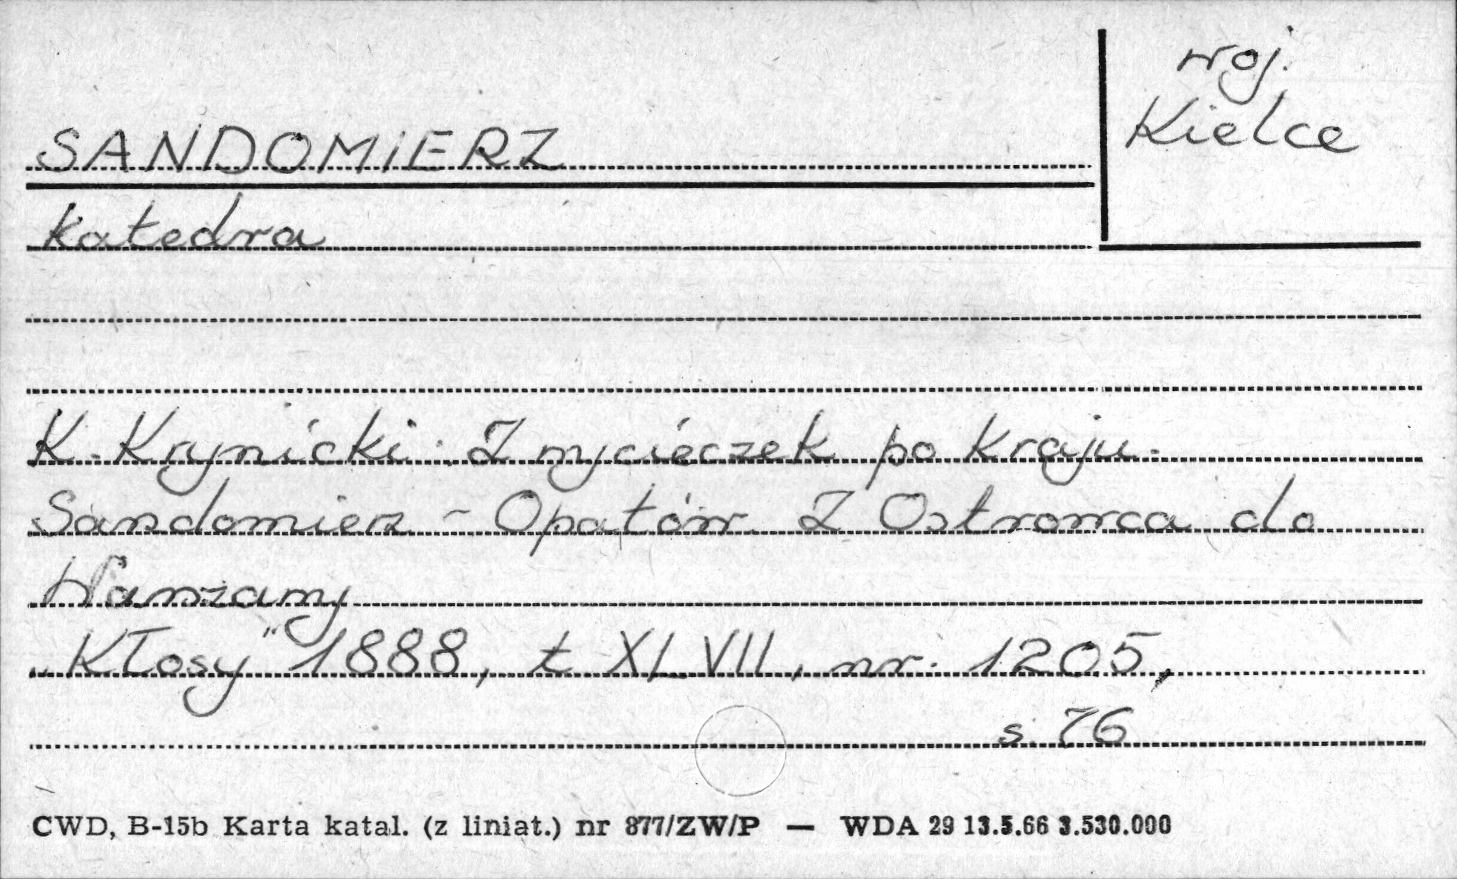 woj.
Kielce
SANDOMIERZ
Katedra
K. Krynicki. Z wycieczek po kraju.
Sandomierz - Opatów. Z Ostrowca do
Warszawy
„Kłosy" 1888, t XLVII, nr. 1205,
s. 76
CWD, B-15b Karta katal. (z liniat.) nr 877/ZW/P — WDA 29 13.5.66 3.530.000